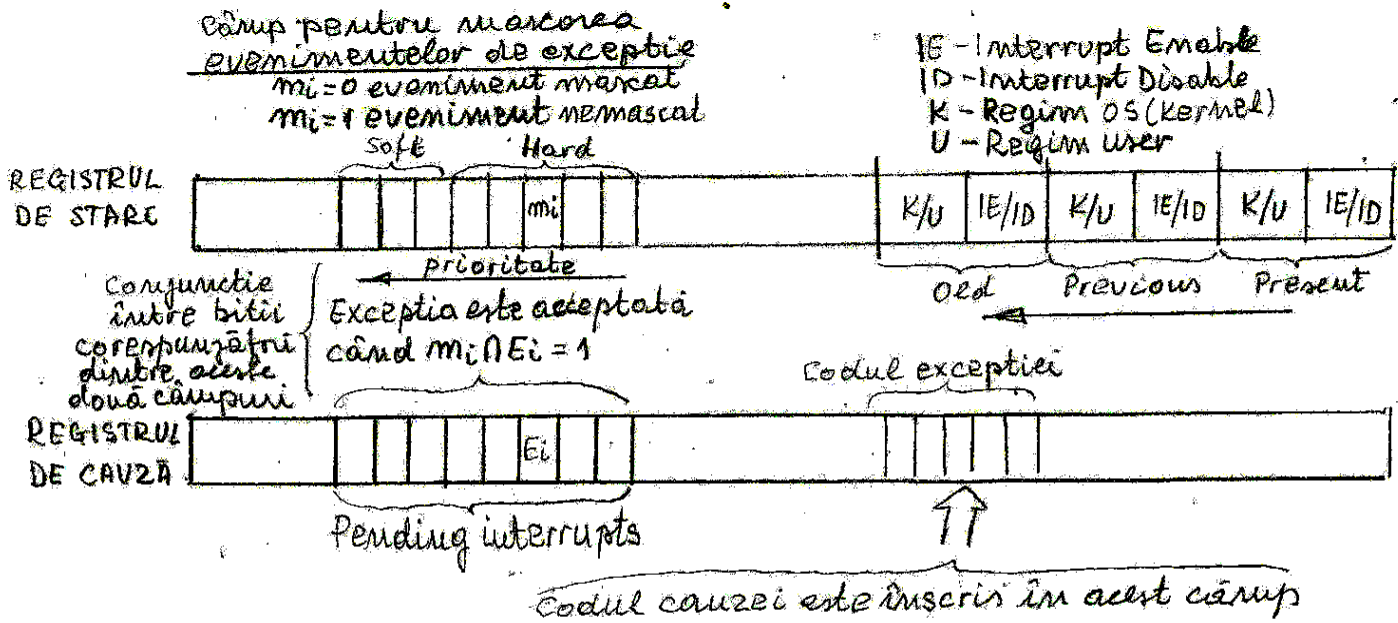 câmp pentru mascarea
evenimentelor de exceptie
mi=0 eveniment mascat
mi=1 eveniment nemascat
IE - Interrupt Enable
ID - Interrupt Disable
K - Regim OS (Kernel)
U - Regim user
Soft Hard
REGISTRUL
DE STARE
mi
K/U IE/ID K/U IE/ID K/U IE/ID
prioritate
Old Previous Present
Conjunctie
între bitii
corespunzători
dintre aceste
două câmpuri
Exceptia este acceptată
când mi∩Ei=1
Codul exceptiei
REGISTRUL
DE CAUZĂ
Ei
Pending interrupts
Codul cauzei este înscris în acest câmp